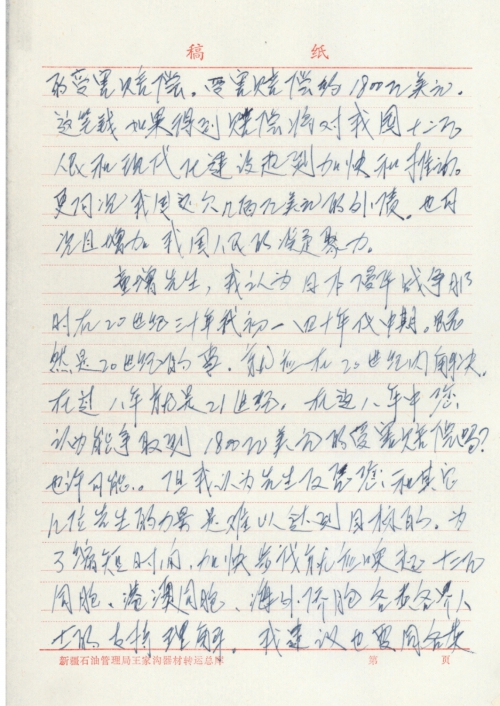 稿 纸
的受害赔偿。受害赔偿约1800亿美元。
这笔钱如果得到赔偿将对我国十二亿
人民和现代化建设起到加快和推动。
更何况我国还欠几百亿美元的外债。也可
况且增加我国人民的凝聚力。
童增先生，我认为日本侵华战争那
时在20世纪三十年代初—四十年代中期。既
然是20世纪的事，就应在20世纪内解决。
在过八年就是21世纪。在这八年中您
认为能争取到1800亿美元的受害赔偿吗？
也许可能。但我认为先生仅靠您和其它
几位先生的力量是难以达到目标的。为
了缩短时间，加快步伐就应唤起十二亿
同胞、港澳同胞、海外侨胞各党各界人
士的支持理解。我建议也要同各
新疆石油管理局王家沟器材转运总库 第 页